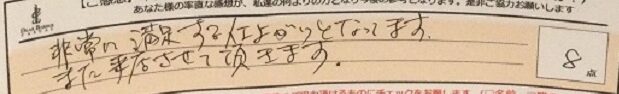 あなた様の率直な感想が、私達の何よりの力となり今後の参考となります。是非ご協力お願いします
非常に満足する仕上がりとなってます。
また来店させて頂きます。
8点